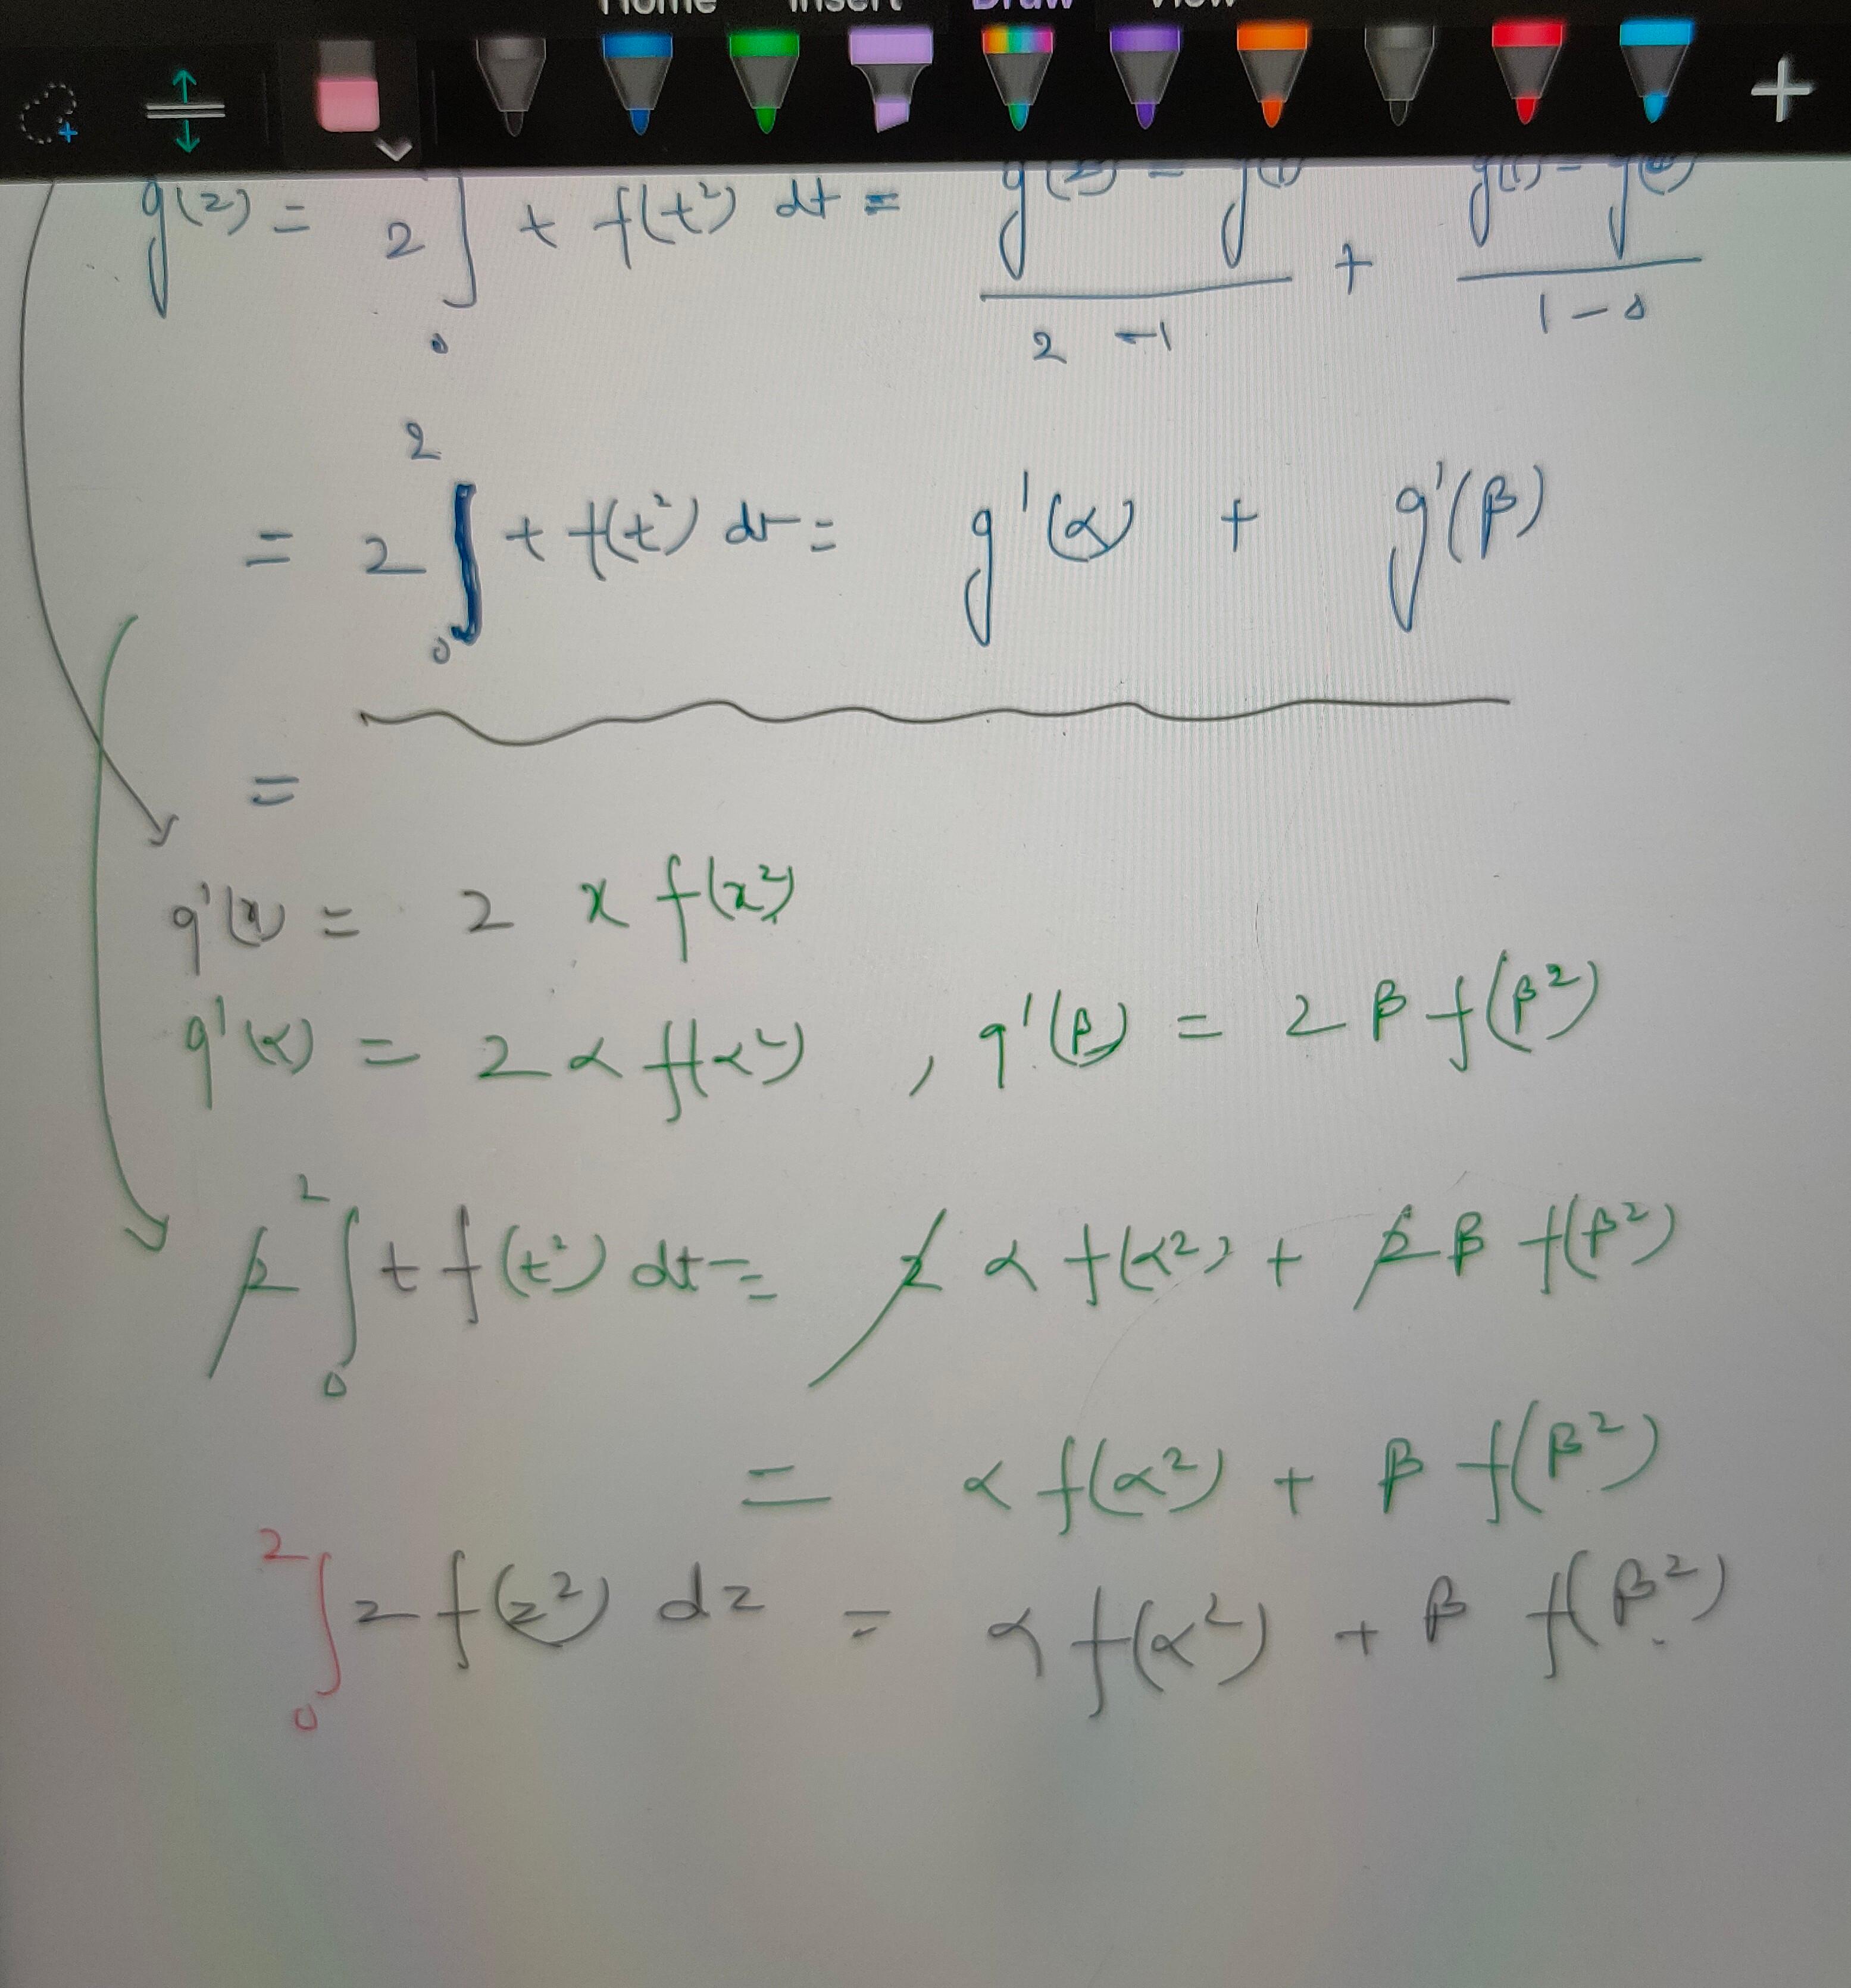 Home Insert Draw View
g(2) = 2 ∫₀ t f(t²) dt = g(2) - g(1) / 2 -1 + g(1) - g(0) / 1 - 0
= 2 ∫₀² t f(t²) dt = g'(α) + g'(β)
=
g'(x) = 2 x f(x²)
g'(α) = 2 α f(α²) , g'(β) = 2 β f(β²)
2 ∫₀² t f(t²) dt = 2 α f(α²) + 2 β f(β²)
= α f(α²) + β f(β²)
∫₀² z f(z²) dz = α f(α²) + β f(β²)